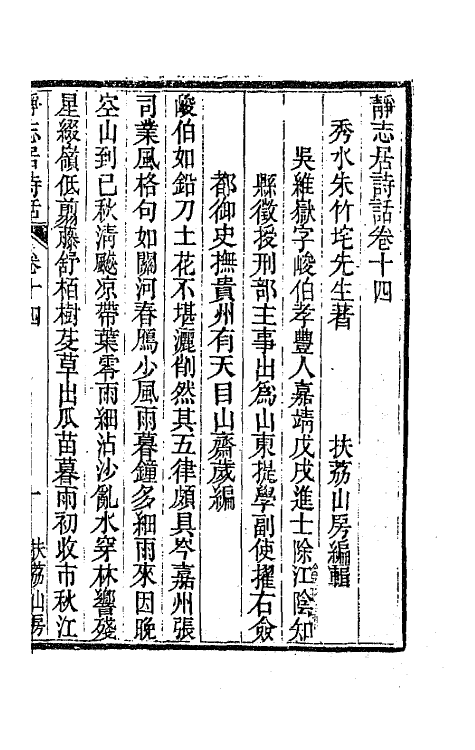 靜志居詩話卷十四
秀水朱竹垞先生著　扶荔山房編輯
吳維嶽字峻伯孝豐人嘉靖戊戌進士除江陰知
縣徵授刑部主事出爲山東提學副使擢右僉
都御史撫貴州有天目山齋歲編
峻伯如鉛刀土花不堪灑削然其五律頗具岑嘉州張
司業風格句如關河春鴈少風雨暮鐘多細雨來因晚
空山到已秋清飈凉帶葉零雨細沾沙亂水穿林響殘
星綴嶺低剪藤舒栢樹芟草出瓜苗暮雨初收市秋江
靜志居詩話　卷十四　一　扶荔山房